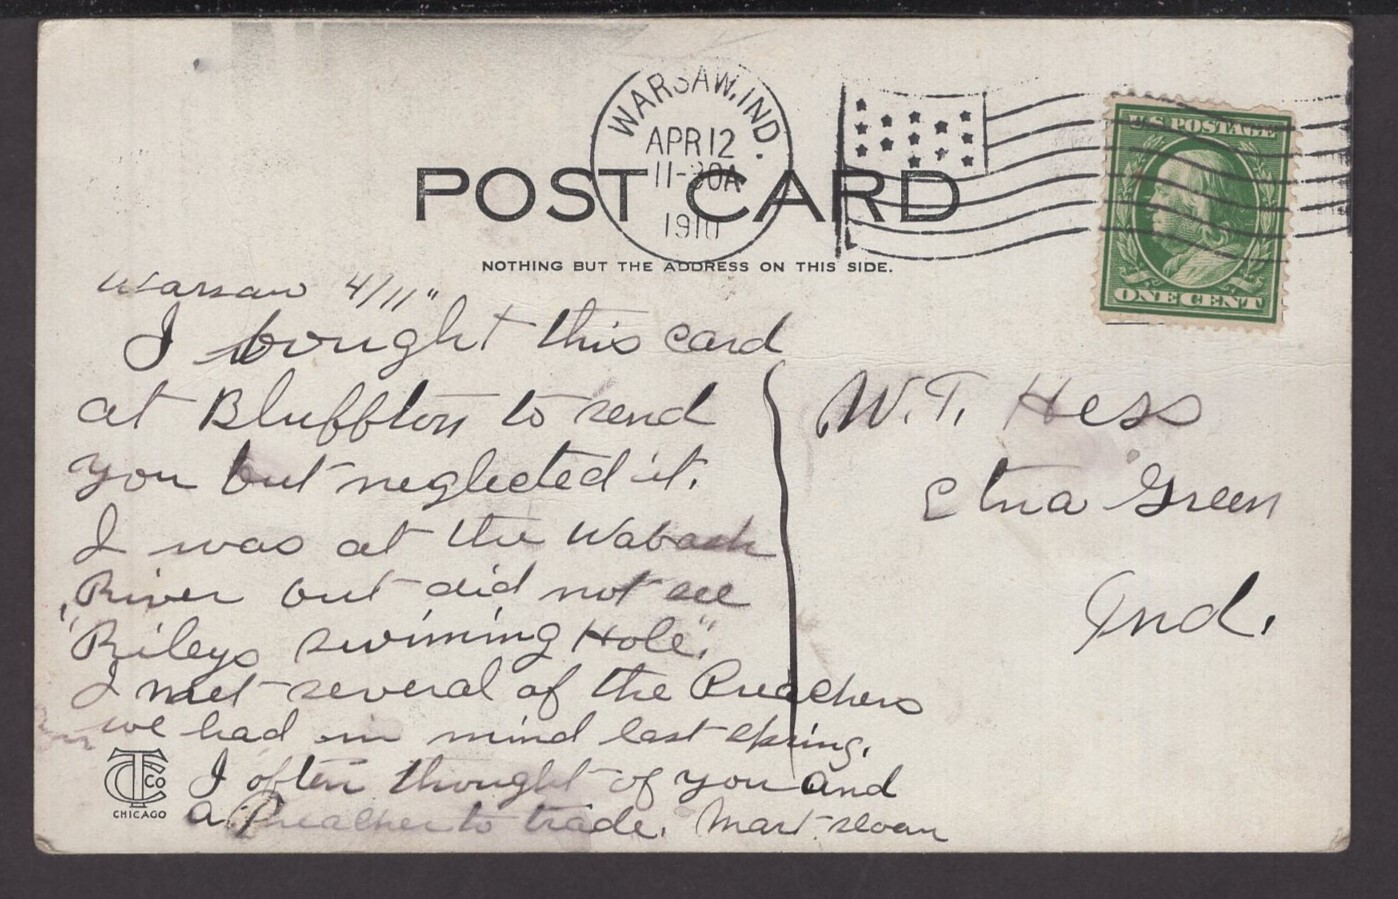 WARSAW, IND.
APR 12
11-30A
1910
U.S. POSTAGE
ONE CENT
POST CARD
NOTHING BUT THE ADDRESS ON THIS SIDE.
Warsaw 4/11"
I bought this card
at Bluffton to send
you but neglected it.
I was at the Wabash
River but did not see
"Rileys swiming Hole".
I met several of the Preachers
we had in mind last spring.
I often thought of you and
a Preacher to trade. Mart Sloan
W.T. Hess
Etna Green
Ind.
CTCo
CHICAGO